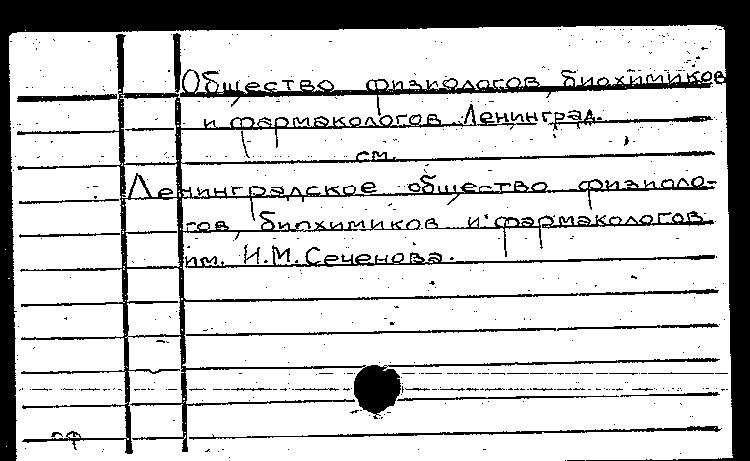 Общество физиологов, биохимиков
и фармакологов Ленинград.
см.
Ленинградское общество физиоло-
гов, биохимиков и фармакологов
им. И.М.Сеченова.